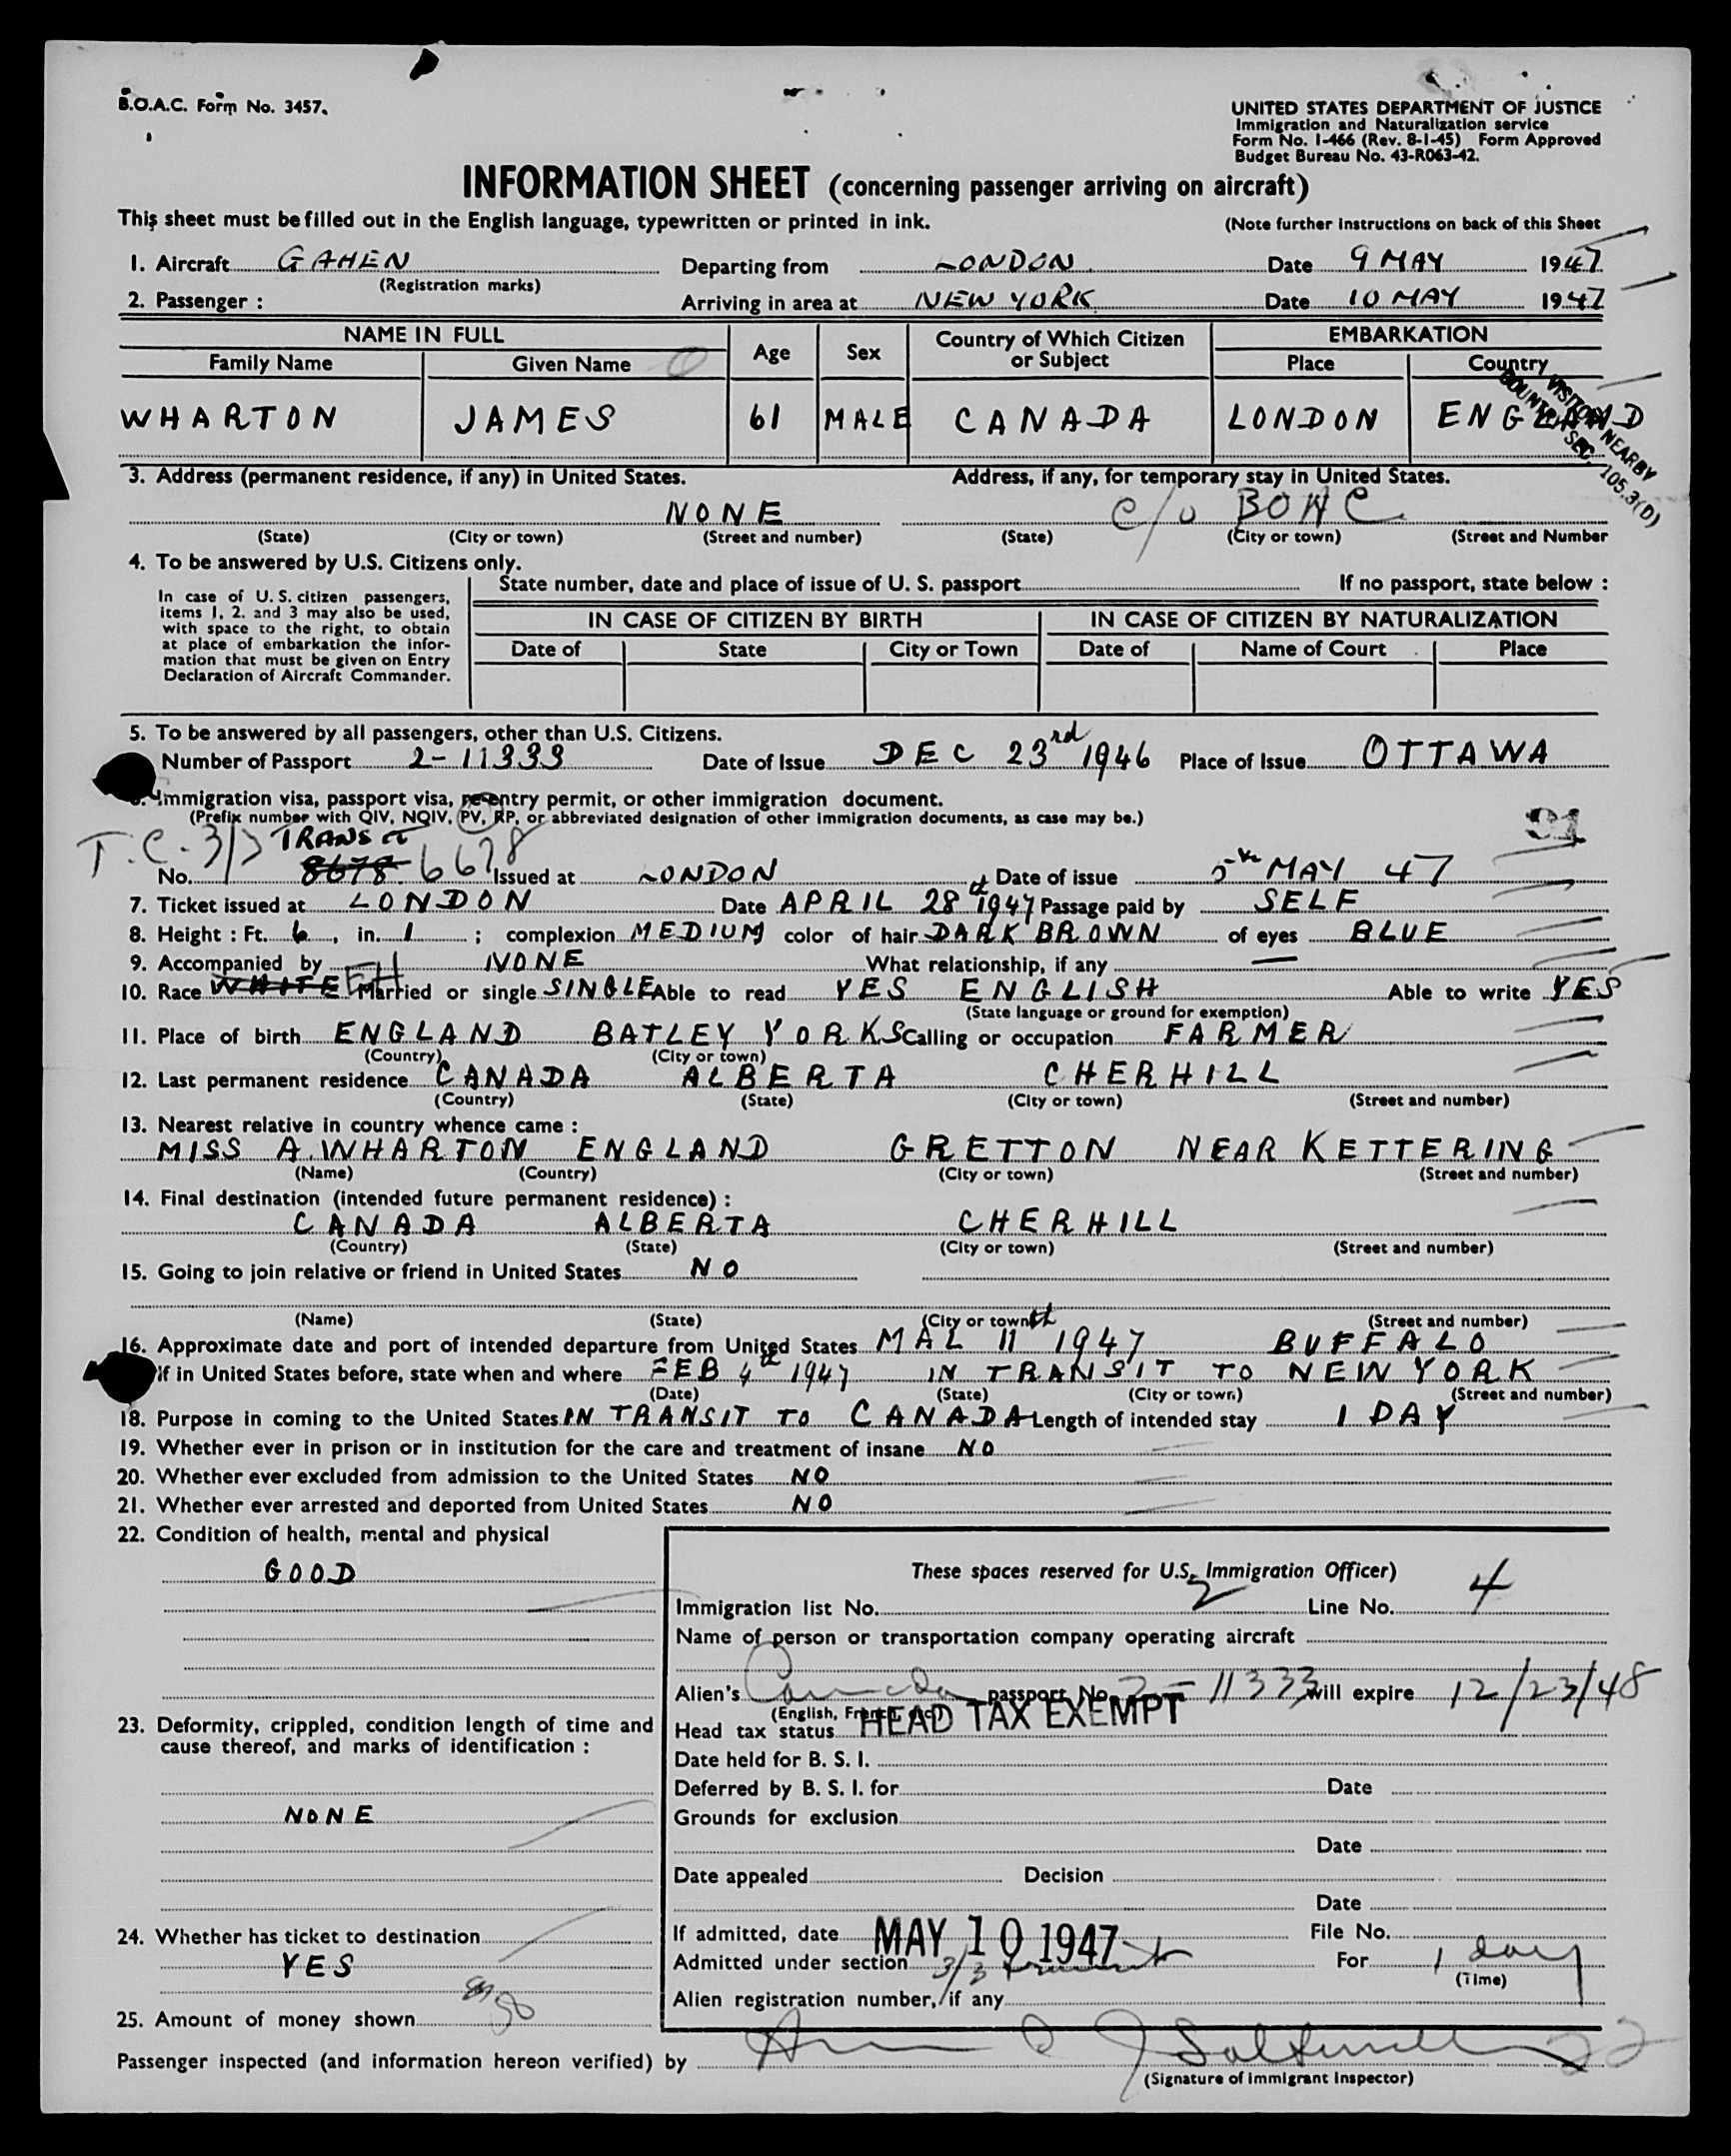 B.O.A.C. Form No. 3457.
UNITED STATES DEPARTMENT OF JUSTICE
Immigration and Naturalization service
Form No. I-466 (Rev. 8-1-45) Form Approved
Budget Bureau No. 43-R063-42.
INFORMATION SHEET (concerning passenger arriving on aircraft)
This sheet must be filled out in the English language, typewritten or printed in ink. (Note further instructions on back of this Sheet
1. Aircraft GAHEN Departing from LONDON Date 9 MAY 1947
(Registration marks)
2. Passenger : Arriving in area at NEW YORK Date 10 MAY 1947
NAME IN FULL Age Sex Country of Which Citizen or Subject EMBARKATION
Family Name Given Name Place Country
WHARTON JAMES 61 MALE CANADA LONDON ENGLAND
VISITOR NEARBY
COUNTRY SEC. 105.3(D)
3. Address (permanent residence, if any) in United States. Address, if any, for temporary stay in United States.
NONE C/o BOAC
(State) (City or town) (Street and number) (State) (City or town) (Street and Number
4. To be answered by U.S. Citizens only.
State number, date and place of issue of U. S. passport If no passport, state below :
In case of U. S. citizen passengers,
items 1, 2. and 3 may also be used,
with space to the right, to obtain
at place of embarkation the infor-
mation that must be given on Entry
Declaration of Aircraft Commander.
IN CASE OF CITIZEN BY BIRTH IN CASE OF CITIZEN BY NATURALIZATION
Date of State City or Town Date of Name of Court Place
5. To be answered by all passengers, other than U.S. Citizens.
Number of Passport 2-11333 Date of Issue DEC 23rd 1946 Place of Issue OTTAWA
Immigration visa, passport visa, re-entry permit, or other immigration document.
(Prefix number with QIV, NQIV, PV, RP, or abbreviated designation of other immigration documents, as case may be.)
91
T.C. 3/3 TRANSIT
No. 8678 6678 Issued at LONDON Date of issue 5th MAY 47
7. Ticket issued at LONDON Date APRIL 28th 1947 Passage paid by SELF
8. Height : Ft. 6, in. 1 ; complexion MEDIUM color of hair DARK BROWN of eyes BLUE
9. Accompanied by NONE What relationship, if any —
10. Race WHITE EH Married or single SINGLE Able to read YES ENGLISH Able to write YES
(State language or ground for exemption)
11. Place of birth ENGLAND BATLEY YORKS Calling or occupation FARMER
(Country) (City or town)
12. Last permanent residence CANADA ALBERTA CHERHILL
(Country) (State) (City or town) (Street and number)
13. Nearest relative in country whence came :
MISS A. WHARTON ENGLAND GRETTON NEAR KETTERING
(Name) (Country) (City or town) (Street and number)
14. Final destination (intended future permanent residence) :
CANADA ALBERTA CHERHILL
(Country) (State) (City or town) (Street and number)
15. Going to join relative or friend in United States NO
(Name) (State) (City or town) (Street and number)
16. Approximate date and port of intended departure from United States MAY 11th 1947 BUFFALO
If in United States before, state when and where FEB 4th 1947 IN TRANSIT TO NEW YORK
(Date) (State) (City or town) (Street and number)
18. Purpose in coming to the United States IN TRANSIT TO CANADA Length of intended stay 1 DAY
19. Whether ever in prison or in institution for the care and treatment of insane NO
20. Whether ever excluded from admission to the United States NO
21. Whether ever arrested and deported from United States NO
22. Condition of health, mental and physical
GOOD
These spaces reserved for U.S. Immigration Officer)
Immigration list No. 2 Line No. 4
Name of person or transportation company operating aircraft
Alien's Canada passport No. 2-11333 will expire 12/23/48
(English, French, etc.)
Head tax status HEAD TAX EXEMPT
23. Deformity, crippled, condition length of time and
cause thereof, and marks of identification :
NONE
Date held for B. S. I.
Deferred by B. S. I. for Date
Grounds for exclusion
Date
Date appealed Decision
Date
24. Whether has ticket to destination
YES
If admitted, date MAY 10 1947 File No.
Admitted under section 3/3 transit For 1 day
(Time)
Alien registration number, if any
25. Amount of money shown
Passenger inspected (and information hereon verified) by
(Signature of immigrant inspector)